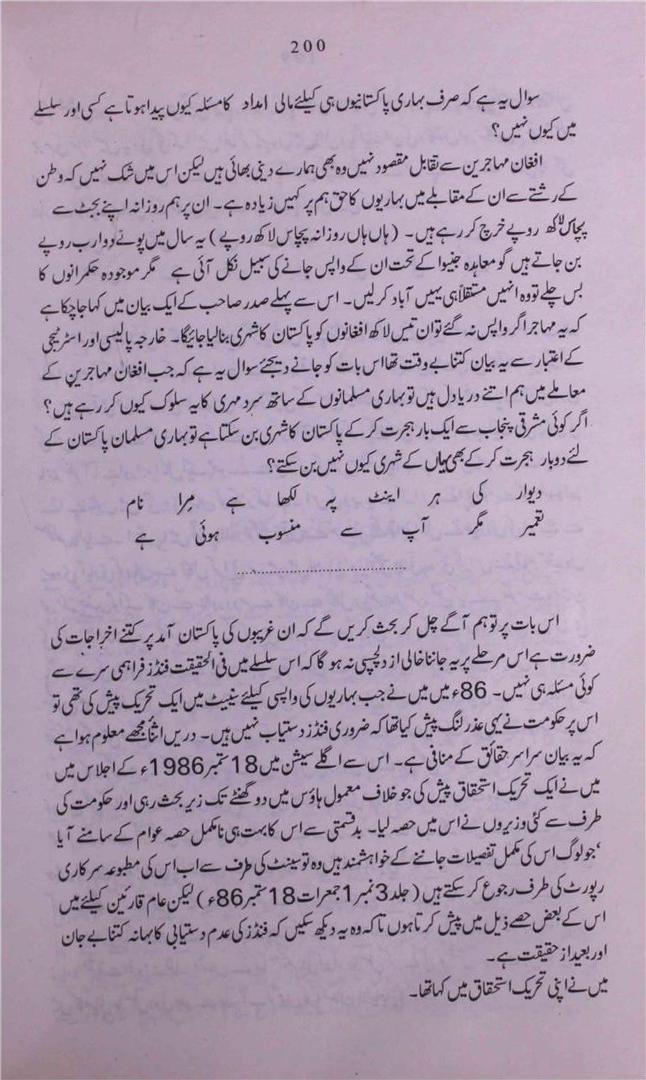 200
سوال یہ ہے کہ صرف بہاری پاکستانیوں ہی کیلئے مالی امداد کا مسئلہ کیوں پیدا ہوتا ہے کسی اور سلسلے
میں کیوں نہیں؟
افغان مہاجرین سے تقابل مقصود نہیں وہ بھی ہمارے دینی بھائی ہیں لیکن اس میں شک نہیں کہ وطن
کے رشتے سے ان کے مقابلے میں بہاریوں کا حق ہم پر کہیں زیادہ ہے۔ ان پر ہم روزانہ اپنے بجٹ سے
پچاس لاکھ روپے خرچ کر رہے ہیں۔ (ہاں ہاں روزانہ پچاس لاکھ روپے) یہ سال میں پونے دو ارب روپے
بن جاتے ہیں گو معاہدہ جنیوا کے تحت ان کے واپس جانے کی سبیل نکل آئی ہے مگر موجودہ حکمرانوں کا
بس چلے تو وہ انہیں مستقلاً ہی یہیں آباد کر لیں۔ اس سے پہلے صدر صاحب کے ایک بیان میں کہا جا چکا ہے
کہ یہ مہاجر اگر واپس نہ گئے تو ان تیس لاکھ افغانوں کو پاکستان کا شہری بنا لیا جائیگا۔ خارجہ پالیسی اور اسٹریٹجی
کے اعتبار سے یہ بیان کتنا بے وقت تھا اس بات کو جانے دیجئے سوال یہ ہے کہ جب افغان مہاجرین کے
معاملے میں ہم اتنے دریا دل ہیں تو بہاری مسلمانوں کے ساتھ سرد مہری کا یہ سلوک کیوں کر رہے ہیں؟
اگر کوئی مشرقی پنجاب سے ایک بار ہجرت کر کے پاکستان کا شہری بن سکتا ہے تو بہاری مسلمان پاکستان کے
لئے دوبار ہجرت کر کے بھی یہاں کے شہری کیوں نہیں بن سکتے؟
دیوار کی ہر اینٹ پہ لکھا ہے مرا نام
تعمیر مگر آپ سے منسوب ہوئی ہے
اس بات پر تو ہم آگے چل کر بحث کریں گے کہ ان غریبوں کی پاکستان آمد پر کتنے اخراجات کی
ضرورت ہے اس مرحلے پر یہ جاننا خالی از دلچسپی نہ ہو گا کہ اس سلسلے میں فی الحقیقت فنڈز فراہمی سرے سے
کوئی مسئلہ ہی نہیں۔ 86ء میں میں نے جب بہاریوں کی واپسی کیلئے سنیٹ میں ایک تحریک پیش کی تھی تو
اس پر حکومت نے یہی عذر لنگ پیش کیا تھا کہ ضروری فنڈز دستیاب نہیں ہیں۔ دریں اثنا مجھے معلوم ہوا ہے
کہ یہ بیان سراسر حقائق کے منافی ہے۔ اس سے اگلے سیشن میں 18 ستمبر 1986ء کے اجلاس میں
میں نے ایک تحریک استحقاق پیش کی جو خلاف معمول ہاؤس میں دو گھنٹے تک زیر بحث رہی اور حکومت کی
طرف سے کئی وزیروں نے اس میں حصہ لیا۔ بدقسمتی سے اس کا بہت ہی نامکمل حصہ عوام کے سامنے آیا
‘جو لوگ اس کی مکمل تفصیلات جاننے کے خواہشمند ہیں وہ تو سینٹ کی طرف سے اب اس کی مطبوعہ سرکاری
رپورٹ کی طرف رجوع کر سکتے ہیں (جلد 3 نمبر 1 جمعرات 18 ستمبر 86ء) لیکن عام قارئین کیلئے میں
اس کے بعض حصے ذیل میں پیش کرتا ہوں تاکہ وہ یہ دیکھ سکیں کہ فنڈز کی عدم دستیابی کا بہانہ کتنا بے جان
اور بعید از حقیقت ہے۔
میں نے اپنی تحریک استحقاق میں کہا تھا۔